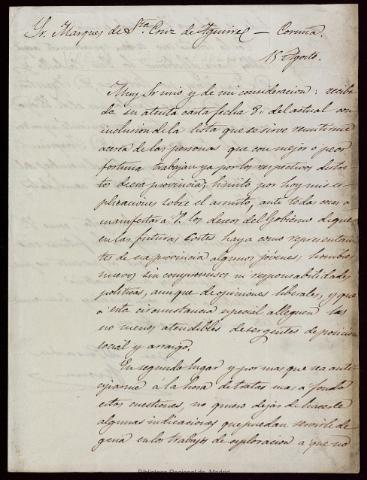 Sr. Marques de Sta. Cruz de Aguirre — Coruña
15 Agosto.
Muy Sr mio y de mi consideracion: recibida
su atenta carta fecha 8 del actual con
inclusion de la lista que se sirve remitirme
acerca de las personas que con mejor o peor
fortuna trabajan ya por los respectivos distri-
tos de esa provincia, limito por hoy mis es-
plicaciones sobre el asunto, ante todo a
manifestar a V. los deseos del Gobierno de que
en las futuras Cortes haya como representan-
tes de esa provincia algunos jóvenes, hombres
nuevos sin compromisos ni responsabilidades
politicas, aunque de opiniones liberales, y que
a esta circunstancia especial alleguen las
no menos atendibles de ser gentes de posicion
social y arraigo.
En segundo lugar y por mas que sea anti-
ciparme a la hora de tratar mas a fondo
estas cuestiones, no quiero dejar de hacerle
algunas indicaciones que puedan servirle de
guia en los trabajos de esploracion a que no
Biblioteca Nacional de Madrid